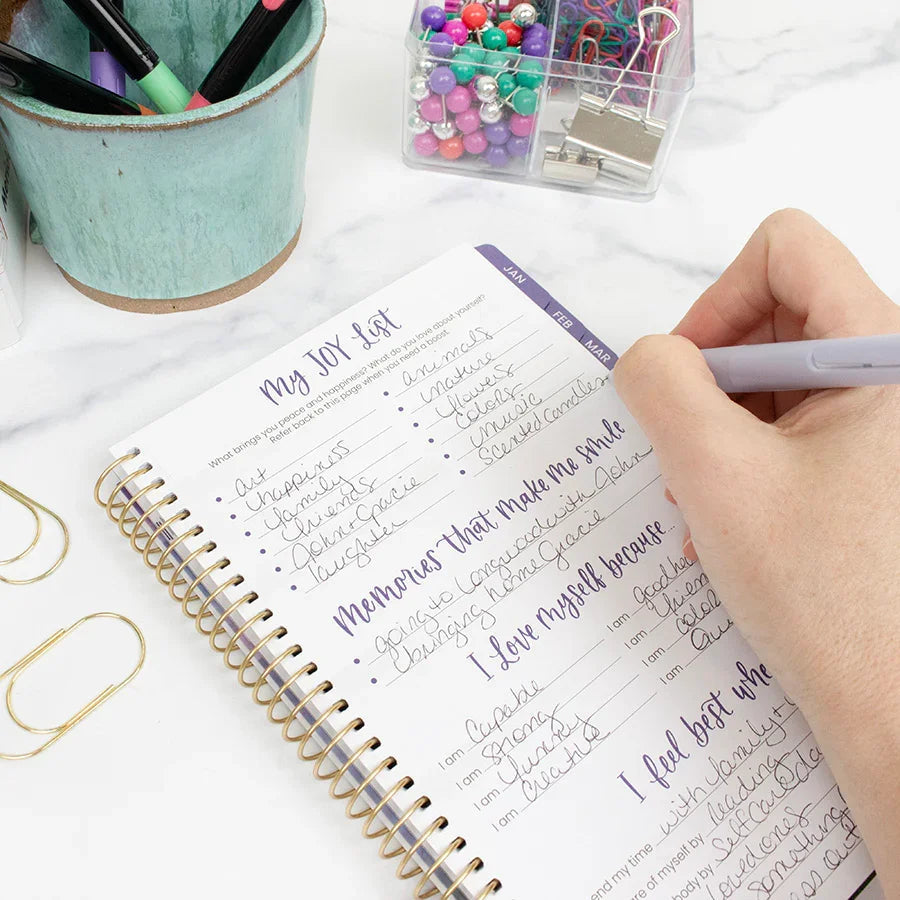 JAN
FEB
MAR
My JOY List
What brings you peace and happiness? What do you love about yourself?
Refer back to this page when you need a boost.
art
happiness
family
friends
John + Gracie
laughter
animals
nature
flowers
colors
music
Scented candles
Memories that make me smile
going to Longwood with John
bringing home Gracie
I love myself because...
I am Capable
I am Strong
I am funny
I am Creative
I am good he
I am
I am
I am
I feel best whe
end my time with family +
re of myself by reading
body by Self Care
loved ones
something